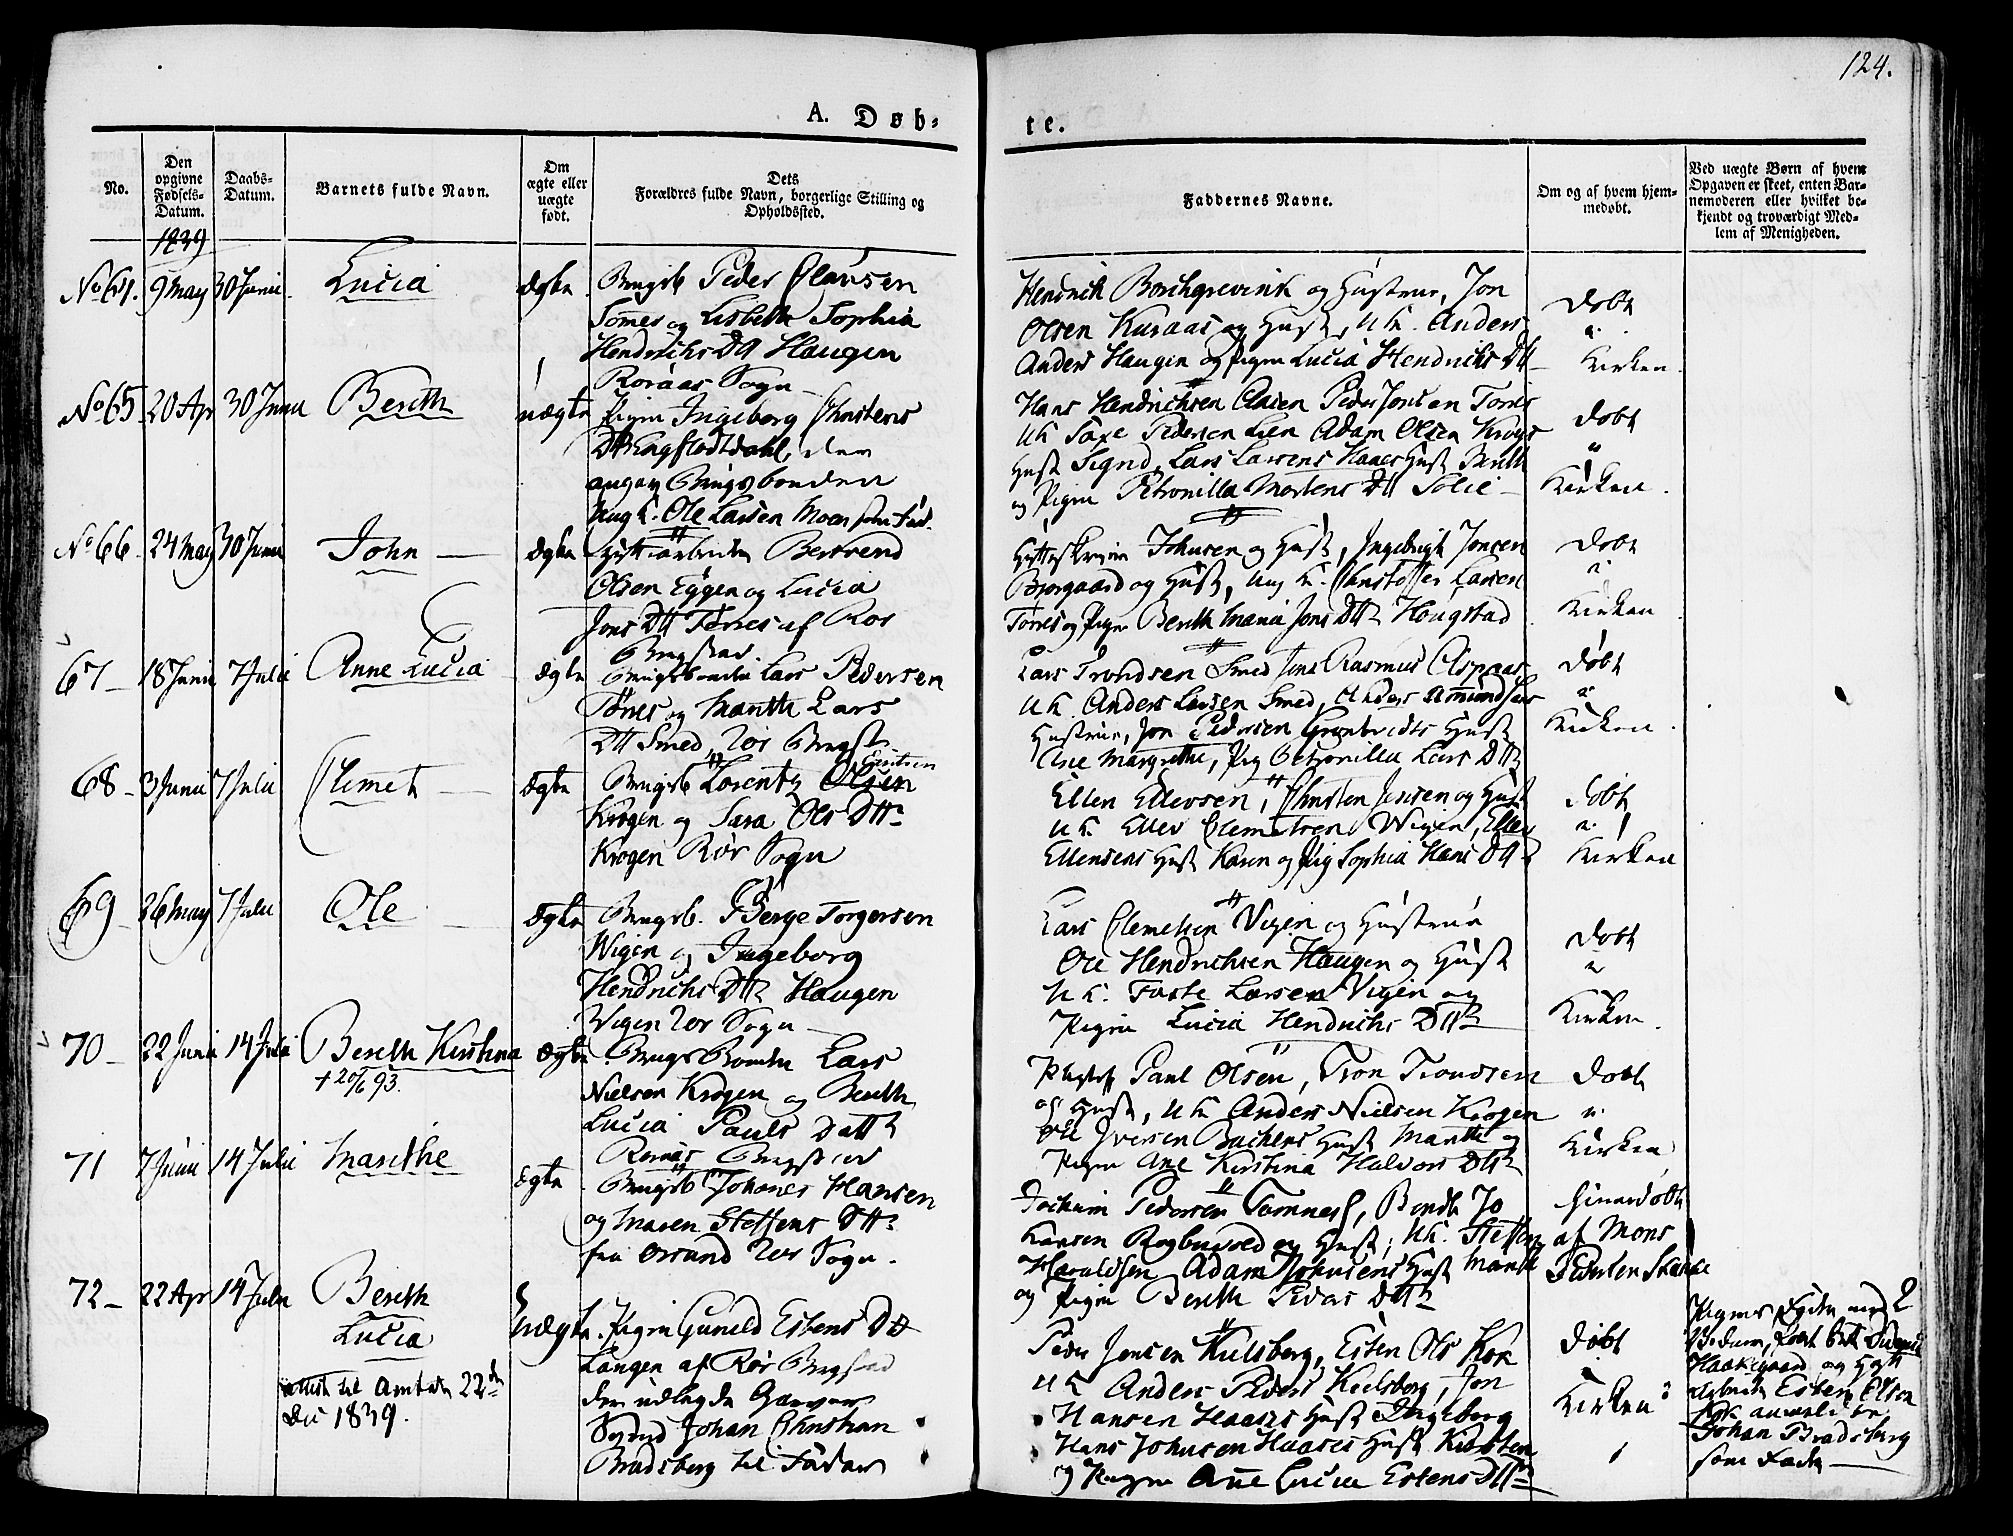 124.
A. Døb-
te.
No.
Den opgivne Fødsels-Datum.
Daabs-Datum.
Barnets fulde Navn.
Om ægte eller uægte født.
Dets Forældres fulde Navn, borgerlige Stilling og Opholdssted.
Faddernes Navne.
Om og af hvem hjemmedøbt.
Ved uægte Børn af hvem Opgaven er skeet, enten Barnemoderen eller hvilket bekjendt og troværdigt Medlem af Menigheden.
1839
No 64. 9 May 30 Junii Lucia Ægte Brugsb Peder Olausen
Tønes og Lisbeth Sophia
Hendrichs Dtt Haugen
Røraas Sogn
Hendrich Borchgrevink og Hustrue, Jon
Olsen Kuraas og Hust, UK. Anders
Anders Haugen og Pigen Lucia Hendrichs Dtt
Døbt
i
Kirken.
No 65 20 Apr 30 Junii Berith uægte Pigen Ingeborg Christens
Dtt Engflodtdahl, den
angav Brugsbonden
Ung K. Ole Larsen Moen som Fad.
Hans Hendrichsen Aasen Peder Jonsen Tønes
UK Saxe Pedersen Lien Adam Olsen Krogs
Hust Sigrid, Lars Larsens Haaes Hust Berith
og Pigen Petronilla Mortens Dtt Solie
Døbt
i
Kirken.
No 66. 24 May 30 Junii John Ægte Hyttearbeider Berrend
Olsen Eggen og Lucia
Jons Dtt Tønes af Rør
Brugstad.
Hytteskriver Johnsen og Hust, Ingebrigt Jonsen
Borgaard og Hust, Ung K. Christoffer Larsen
Tønes og Pigen Berith Maria Jons Dtt Hougstad
Døbt
i
Kirken
67 18 Junii 7 Julii Anne Lucia Ægte Brugsbonden Lars Pedersen
Tønes og Marith Lars
Dtt Smed, Rør Brugst.
Lars Trondsen Smed Jens Rasmus Aspaas
UK. Anders Larsen Smed, Anders Amundsens
Hustrue, Jon Pedersen Grønbredts Hust
Ane Margrethe, Pig Petronilla Lars Dtt
Døbt
i
Kirken.
68 3 Junii 7 Julii Clemet Ægte Brugsb Lorentz Olsen
Krogen og Sara Ols Dtt
Krogen Rør Sogn
Ellen Ellevsen, Christen Jensen og Hust
UK. Ellev Clemetsen Wigen, Ellev
Ellensens Hust Karen og Pig Sophia Hans Dtt
Døbt
i
Kirken
69 26 May 7 Julii Ole Ægte Brugsb. Børge Torgersen
Wigen og Ingeborg
Hendrichs Dtt Haugen
Wigen Rør Sogn
Lars Clemetsen Vigen og Hustrue
Ole Hendrichsen Haugen og Hust
UK. Faste Larsen Vigen og
Pigen Lucia Hendrichs Dtt
Døbt
i
Kirken.
70 22 Junii 14 Julii Berith Kirstina Ægte Brugs Bonden Lars
† 20/6 93.
Nielsen Krogen og Berith
Lucia Pauls Datt
Røraas Brugstad
Paul Olsen, Tron Trondsen
og Hust, UK Anders Nielsen Krogen
Ole Iversen Backens Hust Marith og
Pigen Ane Kirstina Halvors Dtt
Døbt
i
Kirken
71 7 Junii 14 Julii Marithe Ægte Brugsb Johanes Hansen
og Maren Steffens Dtt
fra Orsand Rør Sogn.
Jochum Pedersen Tamnes, Bonde Jo
Hansen Rogbuvold og Hust, UK. Steffen
Haraldsen Adam Johnsens Hust Marith
og Pigen Berith Peders Dtt
Hiemdøbt
af Mons
Pedersen Skanke
72 22 Apr 14 Julii Berith
Lucia
uægte. Pigen Gunild Estens Dtt
Langen af Rør Brugstad
den udlagde Garver
Svend Johan Christian
Bradsberg til Fader
attest til Amtet 22de
Dec 1839.
Peder Jensen Kulsberg, Esten Ols Kok
UK Anders Peders Kulsberg, Jon
Hansen Haaes Hust Ingeborg
Hans Johnsen Haases Hust Kirsten
og Pigen Ane Lucia Estens Dtt
Døbt
i
Kirken
Pigens Fader med 2
Haakegaard og
Esten Olsen
Kok
Johan Bradsberg
som Fader